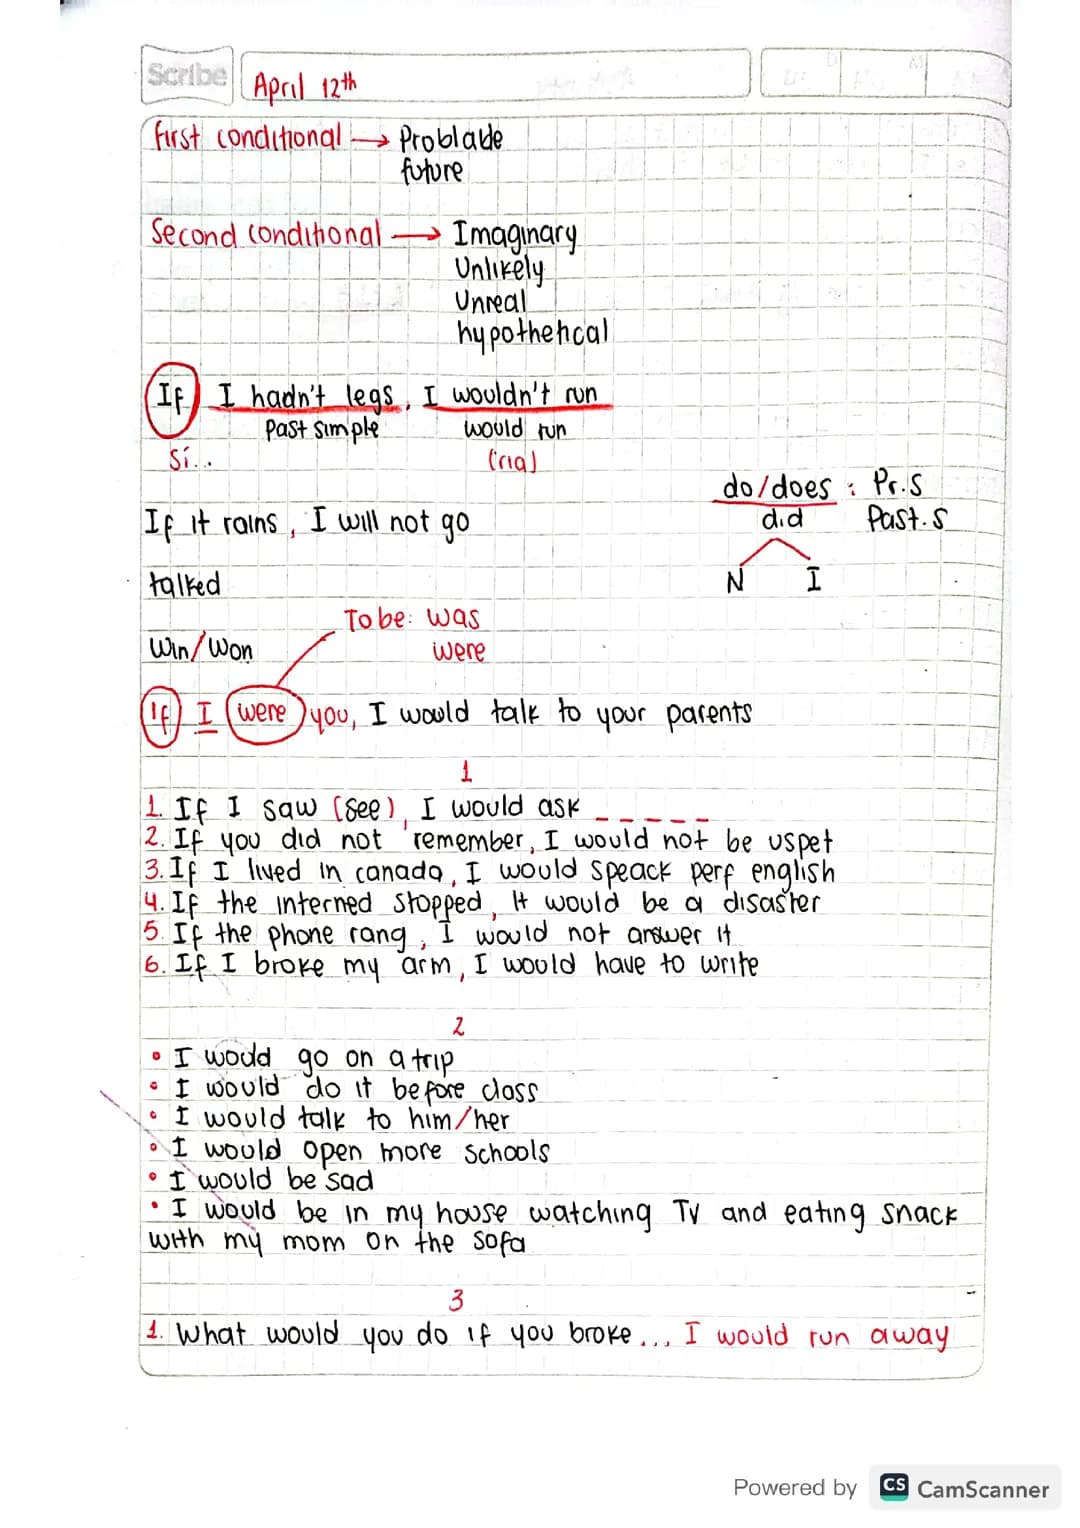 Scribe
April 12th
First conditional → Problade
future
Second conditional → Imaginary
Unlikely
Unreal
hypothetical
If I hadn't legs, I wouldn't run
Past simple would run
Sí... (ría)
do/does : Pr.S
If it rains, I will not go
did Past.S
N I
talked
To be: was
Win/Won were
If I were you, I would talk to your parents
1
1. If I saw (see), I would ask _ _ _ _ _
2. If you did not remember, I would not be uspet
3. If I lived in canada, I would speack perf english
4. If the interned stopped, It would be a disaster
5. If the phone rang, I would not answer it
6. If I broke my arm, I would have to write
2
• I would go on a trip
• I would do it before class
• I would talk to him/her
• I would open more schools
• I would be sad
• I would be in my house watching TV and eating snack
with my mom on the sofa
3
1. What would you do if you broke... I would run away
Powered by CS CamScanner